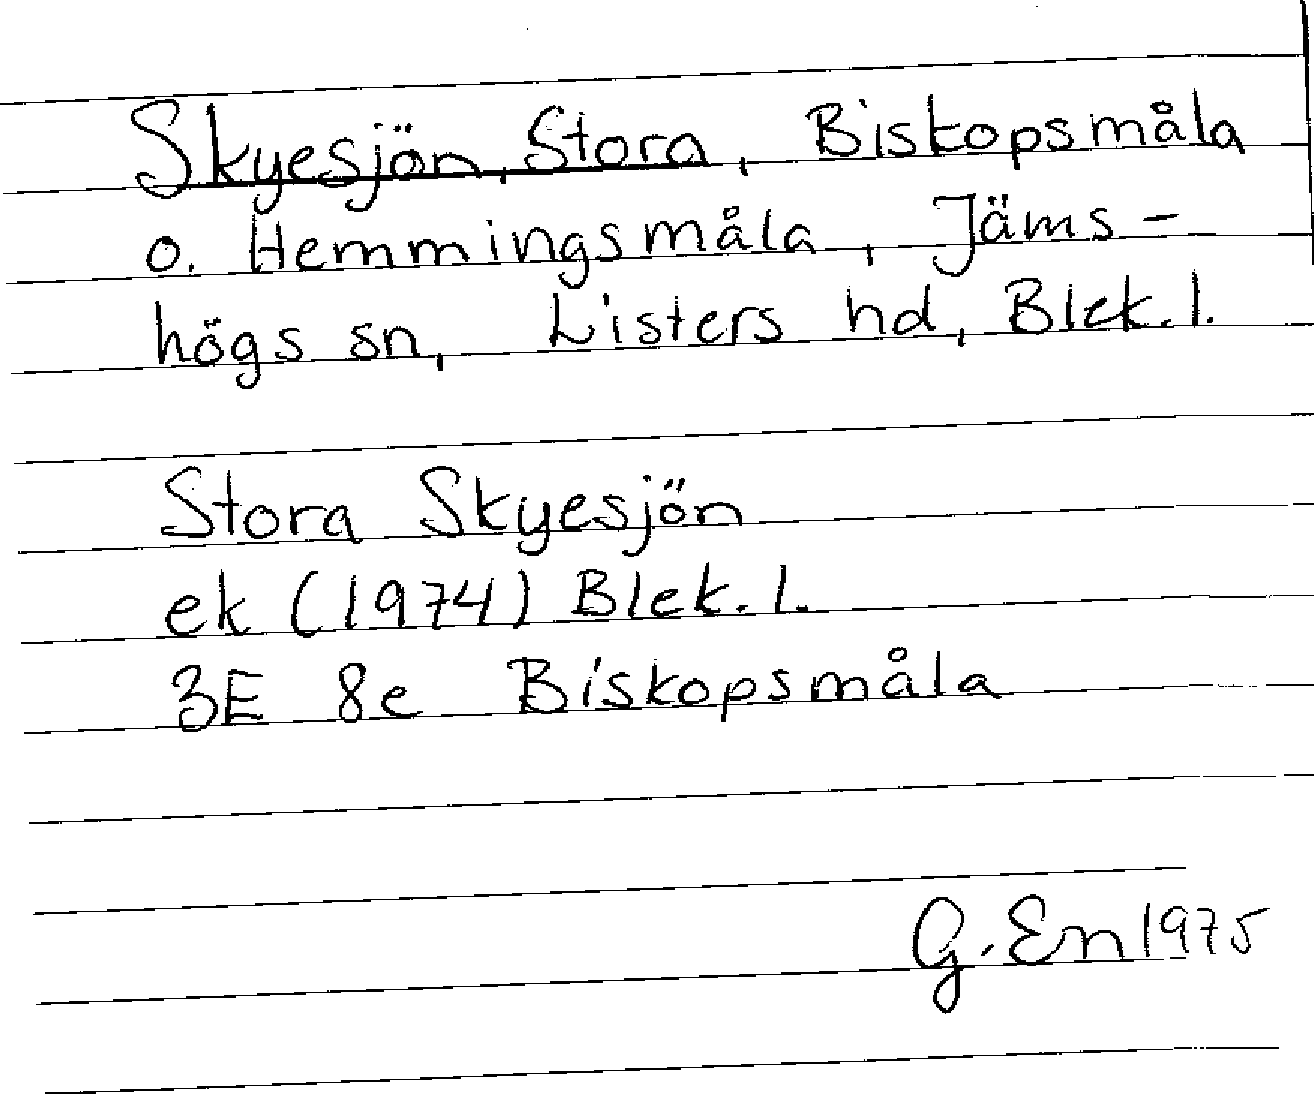 Skyesjön, Stora, Biskopsmåla
o. Hemmingsmåla, Jäms-
högs sn, Listers hd, Blek. l.
Stora Skyesjön
ek (1974) Blek. l.
3E 8e Biskopsmåla
G. En 1975